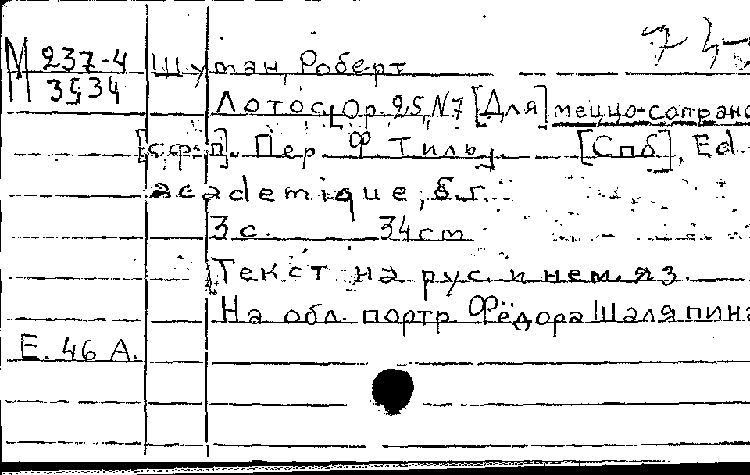 М 237-4 Шуман, Роберт
3534
Лотос, Op. 25, N7 [Для] меццо-сопрано
[с ф-п]. Пер. Ф Тильу [Спб], Ed.
academique, б.г.
3 с. 34 cm
Текст на рус. и нем. яз.
На обл. портр. Фёдора Шаляпина
Е. 46 А.